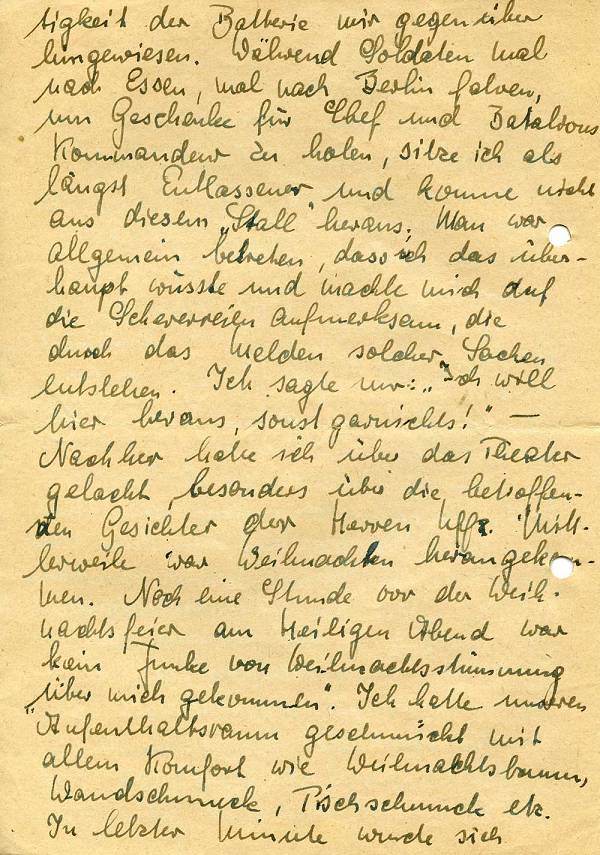 tigkeit der Batterie mir gegenüber
hingewiesen. Während Soldaten mal
nach Essen, mal nach Berlin fahren,
um Geschenke für Chef und Batalions
Kommandeur zu holen, sitze ich als
längst Entlassener und komme nicht
aus diesem „Stall" heraus. Man war
allgemein betreten, dass ich das über-
haupt wüsste und machte mich auf
die Scherereien aufmerksam, die
durch das Melden solcher Sachen
entstehen. Ich sagte nur: „Ich will
hier heraus, sonst garnichts!" —
Nachher habe ich über das Theater
gelacht, besonders über die betroffen-
den Gesichter der Herren Uffz. Mitt-
lerweile war Weihnachten herangekom-
men. Noch eine Stunde vor der Weih-
nachtsfeier am Heiligen Abend war
kein Funke von Weihnachtsstimmung
„über mich gekommen". Ich hatte unseren
Aufenthaltsraum geschmückt mit
allem Komfort wie Weihnachtsbaum,
Wandschmuck, Tischschmuck etz.
In letzter Minute wurde sich